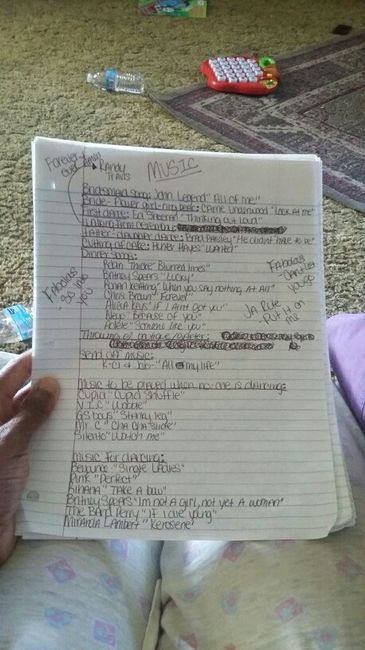 MUSIC
Forever
Randy
Travis
Bridesmaid song: John Legend "All of me"
Bride - Flower girl - ring : Carrie Underwood "Look At me"
First dance: Ed Sheeran "Thinking out loud"
Walking from
Father-daughter dance: Brad Paisley "He didn't have to be"
Cutting of cake: Hunter Hayes "Wanted"
Dinner songs:
Robin Thicke "Blurred lines"
Britney Spears "Lucky"
Ronan Keating "When you say nothing At All"
Chris Brown "Forever"
Alicia Keys "If I Ain't Got you"
Neyo "because of you"
Adele "Someone like you"
Fabolous
So into
you
Fabolous
JA Rule
put it on
me
Send off music:
K-Ci & JoJo "All my life"
Music to be played when no-one is dancing:
Cupid "Cupid Shuffle"
V.I.C "Wobble"
GS boys "Stanky leg"
Mr. C "Cha Cha slide"
Silento "Watch me"
Music for dancing:
Beyounce "Single Ladies"
Pink "Perfect"
Rihana "Take A bow"
Britney Spears "Im not A girl, not yet A woman"
The Band Perry "If I die young"
Miranda Lambert "Kerosene"